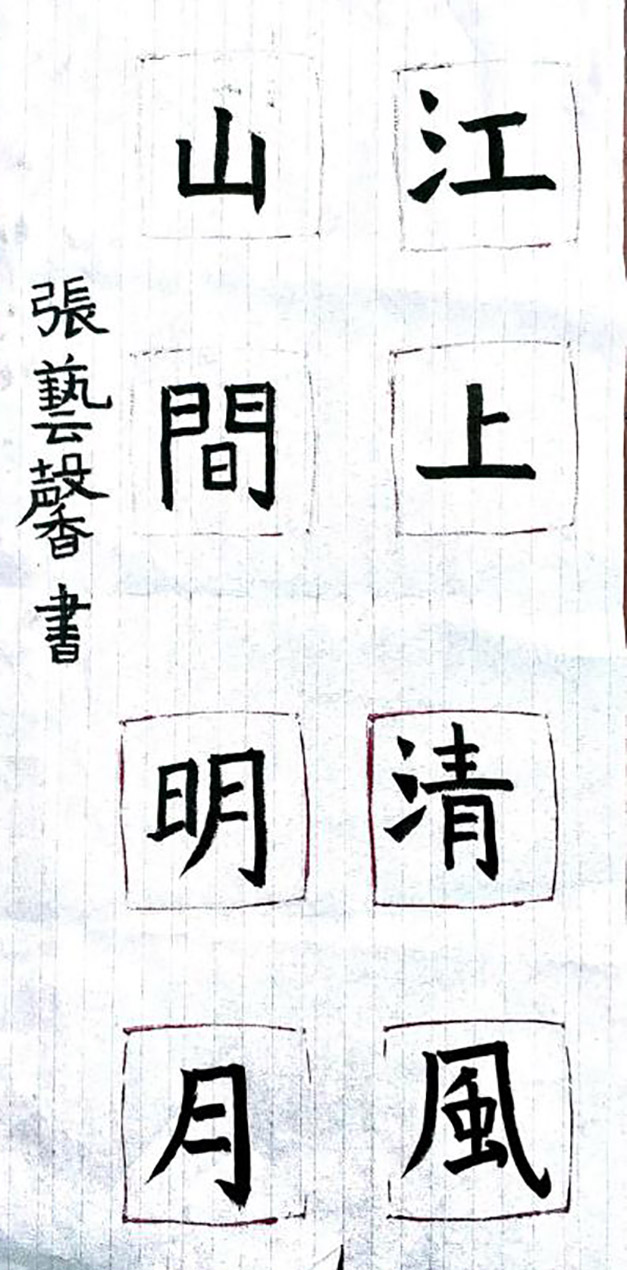 江上清風
山間明月
張藝馨書